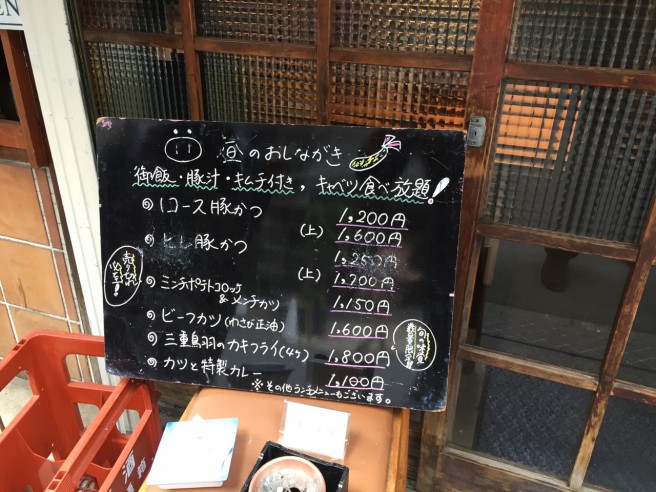 EN
旬のおしながき
御飯・豚汁・キムチ付き, キャベツ食べ放題!
ロース豚かつ 1,200円
(上) 1,600円
ヒレ豚かつ 1,250円
(上) 1,700円
ミンチポテトコロッケ
& メンチカツ 1,150円
ビーフカツ(わさび正油) 1,600円
三重鳥羽のカキフライ(4ケ) 1,800円
カツと特製カレー 1,100円
※その他ランチメニューもございます。
売り切れ
必至!
旬の味覚
数量限定!!
酒